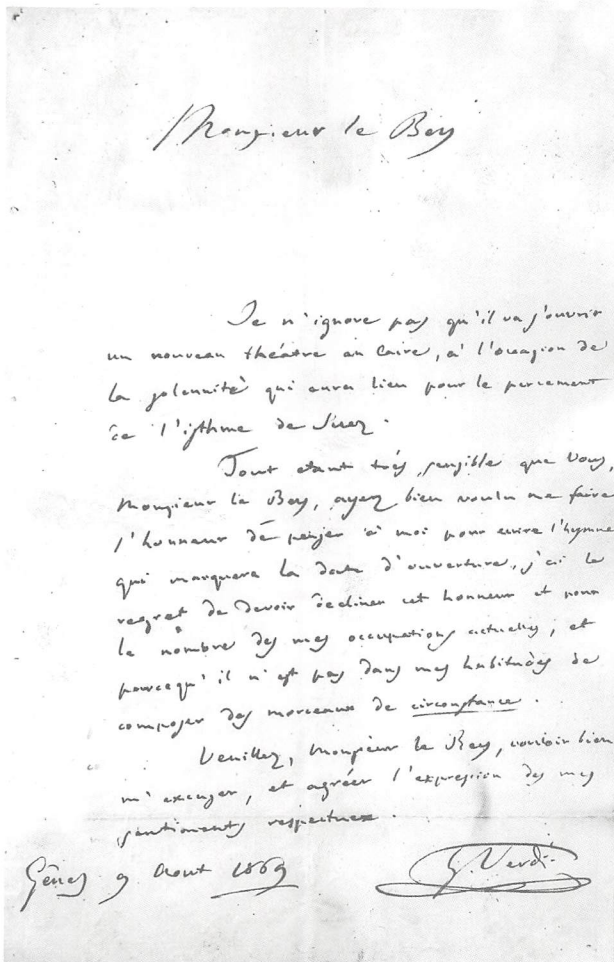 Monsieur le Bey
Je n'ignore pas qu'il va s'ouvrir
un nouveau théâtre au Caire, à l'occasion de
la solennité qui aura lieu pour le percement
de l'isthme de Suez.
Tout etant très sensible que Vous,
Monsieur le Bey, ayez bien voulu me faire
l'honneur de penser à moi pour ecrire l'hymne
qui marquera la date d'ouverture, j'ai le
regret de devoir decliner cet honneur et pour
le nombre des mes occupations actuelles, et
parcequ'il n'est pas dans mes habitudes de
composer des morceaux de circonstance.
Veuillez, Monsieur le Bey, vouloir bien
m'excuser, et agréer l'expression des mes
sentiments respectueux.
Gênes 9 Aout 1869
G. Verdi